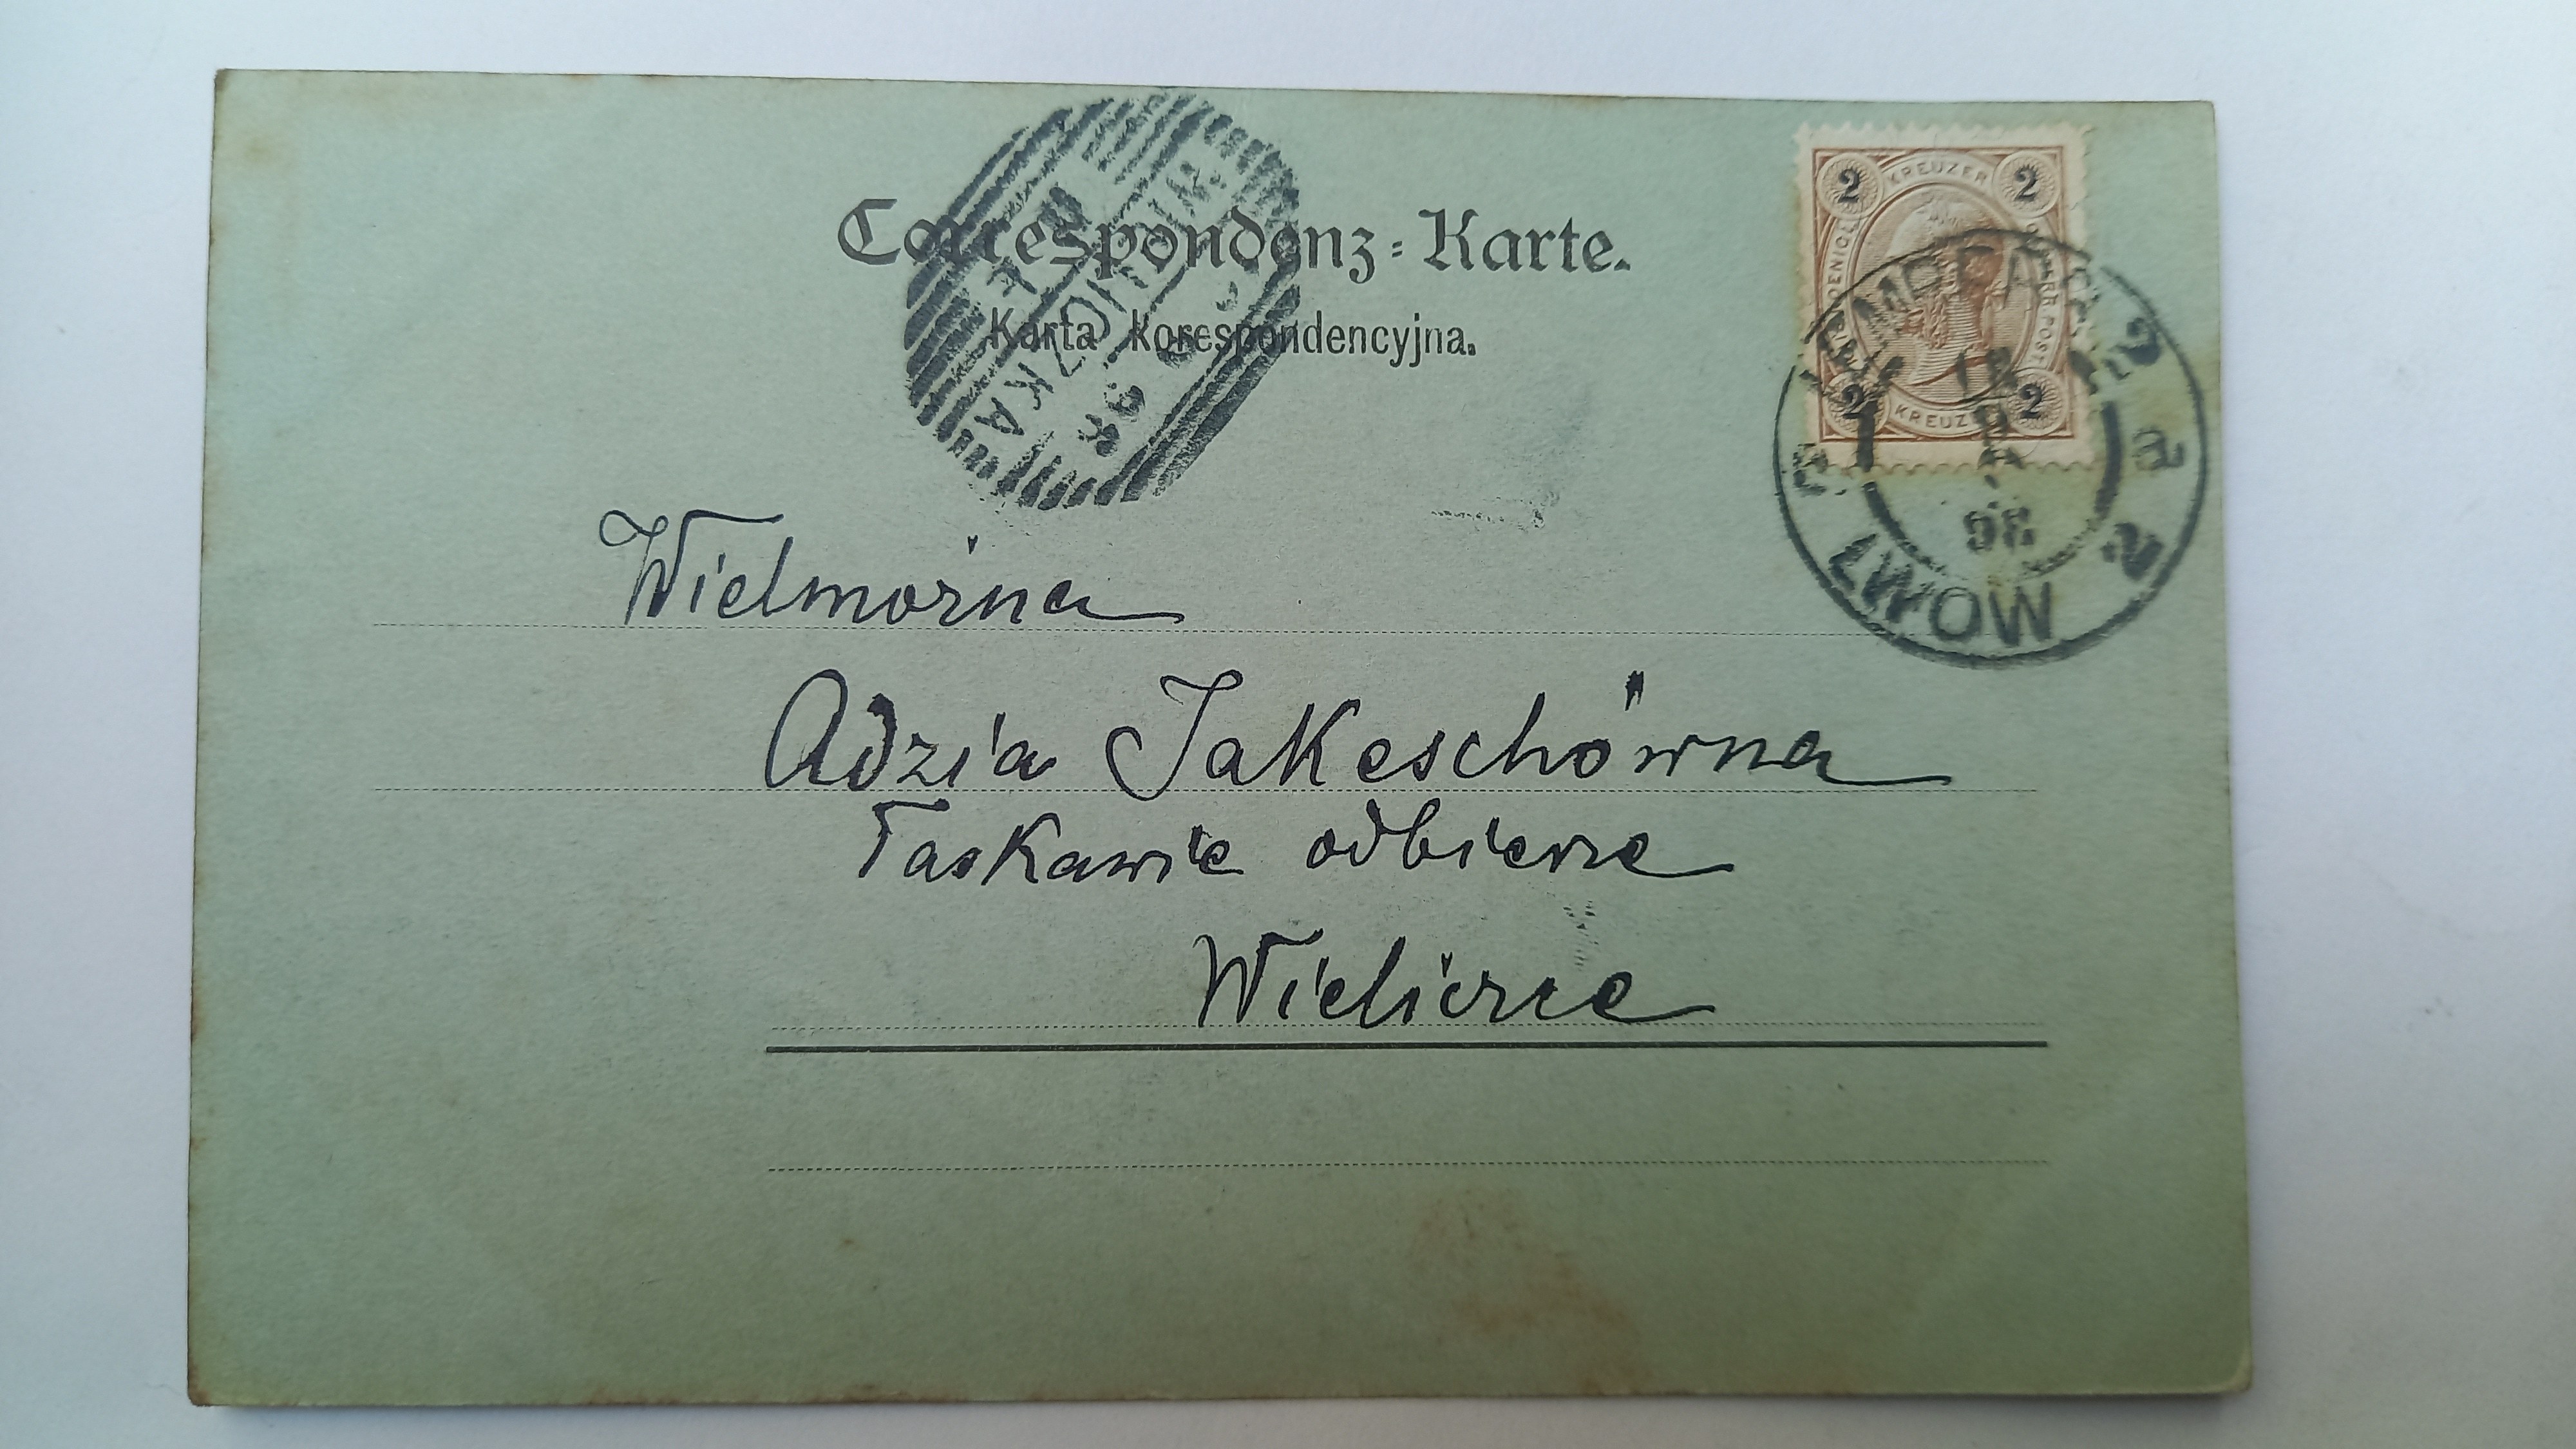 Correspondenz-Karte.
Karta korespondencyjna.
2 KREUZER 2
2 2
LEMBERG 2
98
LWOW
a 2
WIELICZKA
Wielmożna
Adzia Jakeschówna
łaskawie odbierze
Wieliczce